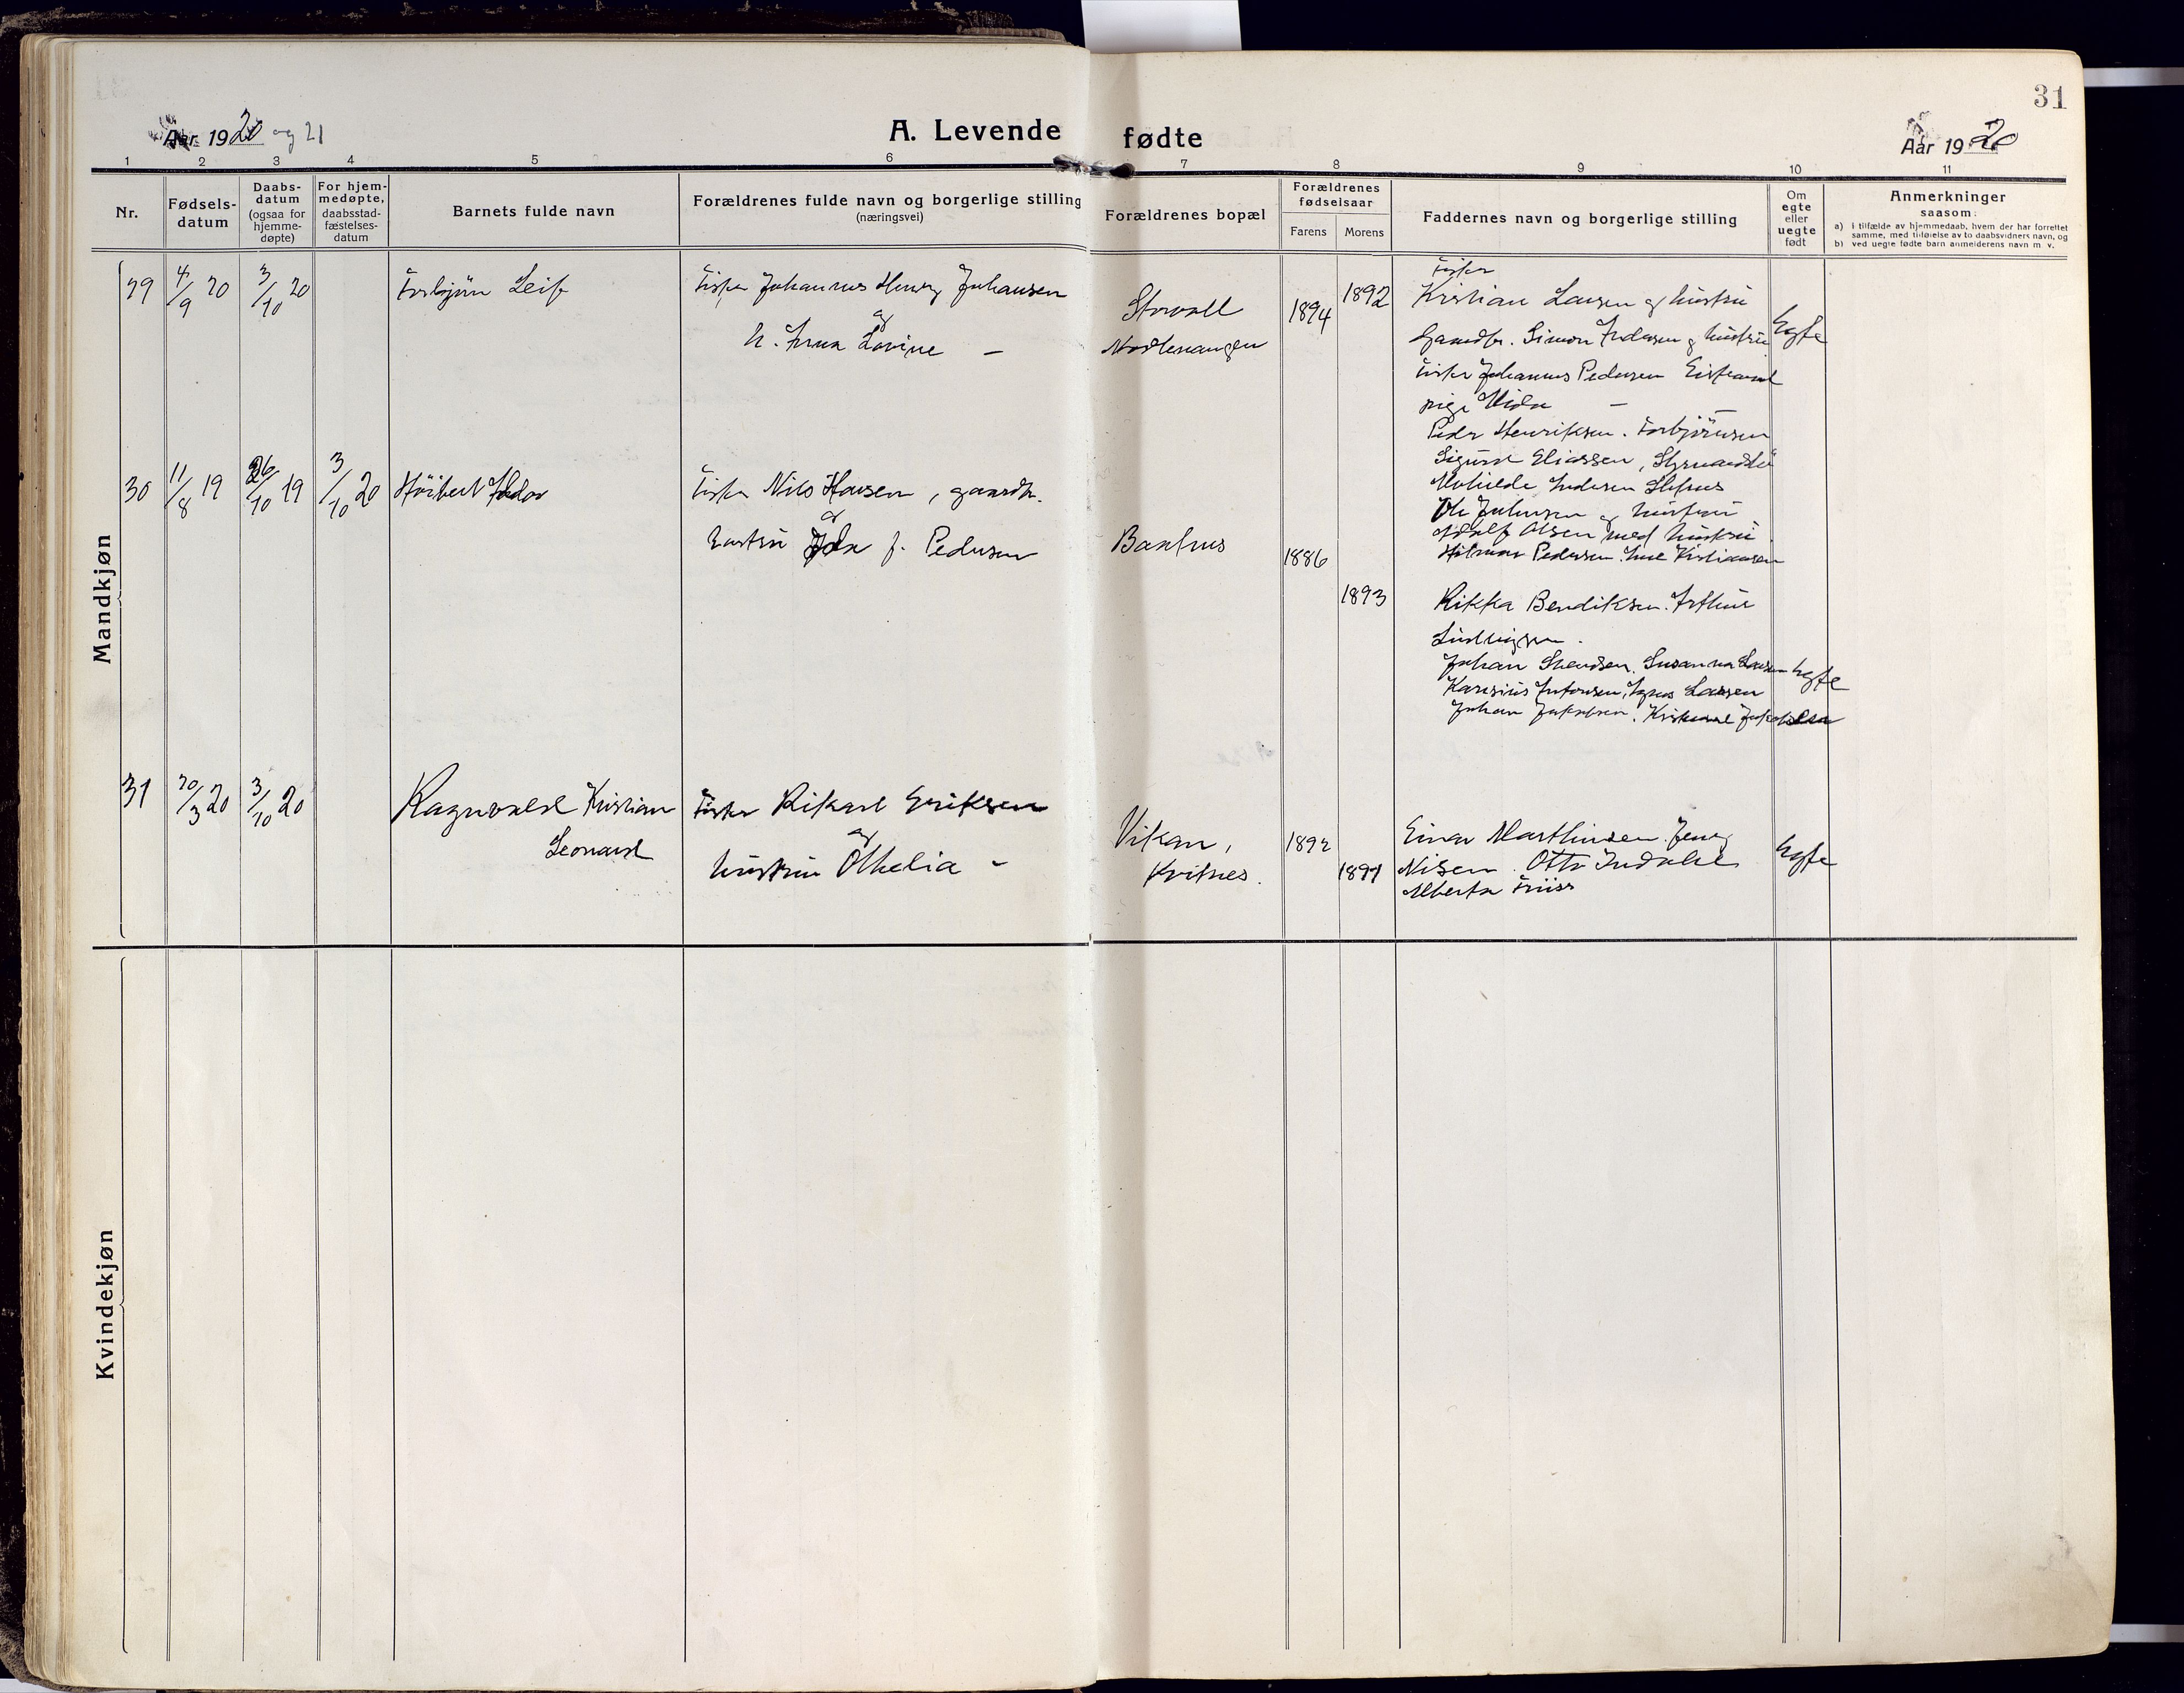 31
Aar 1920 og 21
A. Levende fødte
Aar 1920
1 2 3 4 5 6 7 8 9 10 11
Nr.
Fødsels-
datum
Daabs-
datum
(ogsaa for
hjemme-
døpte)
For hjem-
medøpte,
daabsstad-
fæstelses-
datum
Barnets fulde navn
Forældrenes fulde navn og borgerlige stilling
(næringsvei)
Forældrenes bopæl
Forældrenes
fødselsaar
Farens Morens
Faddernes navn og borgerlige stilling
Om
egte
eller
uegte
født
Anmerkninger
saasom:
a) i tilfælde av hjemmedaab, hvem der har forrettet
samme, med tilføielse av to daabsvidners navn, og
b) ved uegte fødte barn anmelderens navn m. v.
Mandkjøn
29
4/9 20
3/10 20
Torbjörn Leif
Fisker Johannes Henry Johansen
og
h. Anna Lovine –
Storvoll
1894
1892
Fisker
Kristian Larsen og hustru
Gaardbr. Simon Andersen og hustru
Fisker Johannes Pedersen
pige
Peder Henriksen. Torbjörnsen
Egte
30
11/8 19
26/10 19
3/10 20
Fisker Nils Hansen, gaardbr.
og
hustru Ida f. Pedersen
1886
1893
Sigurd Eliassen,
Mathilde Andersen
Ole Johnsen og hustru
Adolf Olsen med hustru
Hilmar Pedersen. Kristiansen
Rikka Bendiksen. Arthur
Ludvigsen.
Johan Svendsen. Susanna Larsen
Karisius Antonsen, Agnes Larsen
Johan Jakobsen. Jakobsen
Egte
31
20/3 20
3/10 20
Ragnvald Kristian
Leonard
Fisker Rikard Eriksen
og
hustru Othelia –
Vikan,
Kvitnes.
1892
1891
Einar Marthinsen. Jenny
Nilsen. Otto Indahl
Alberta Friis
Egte
Kvindekjøn